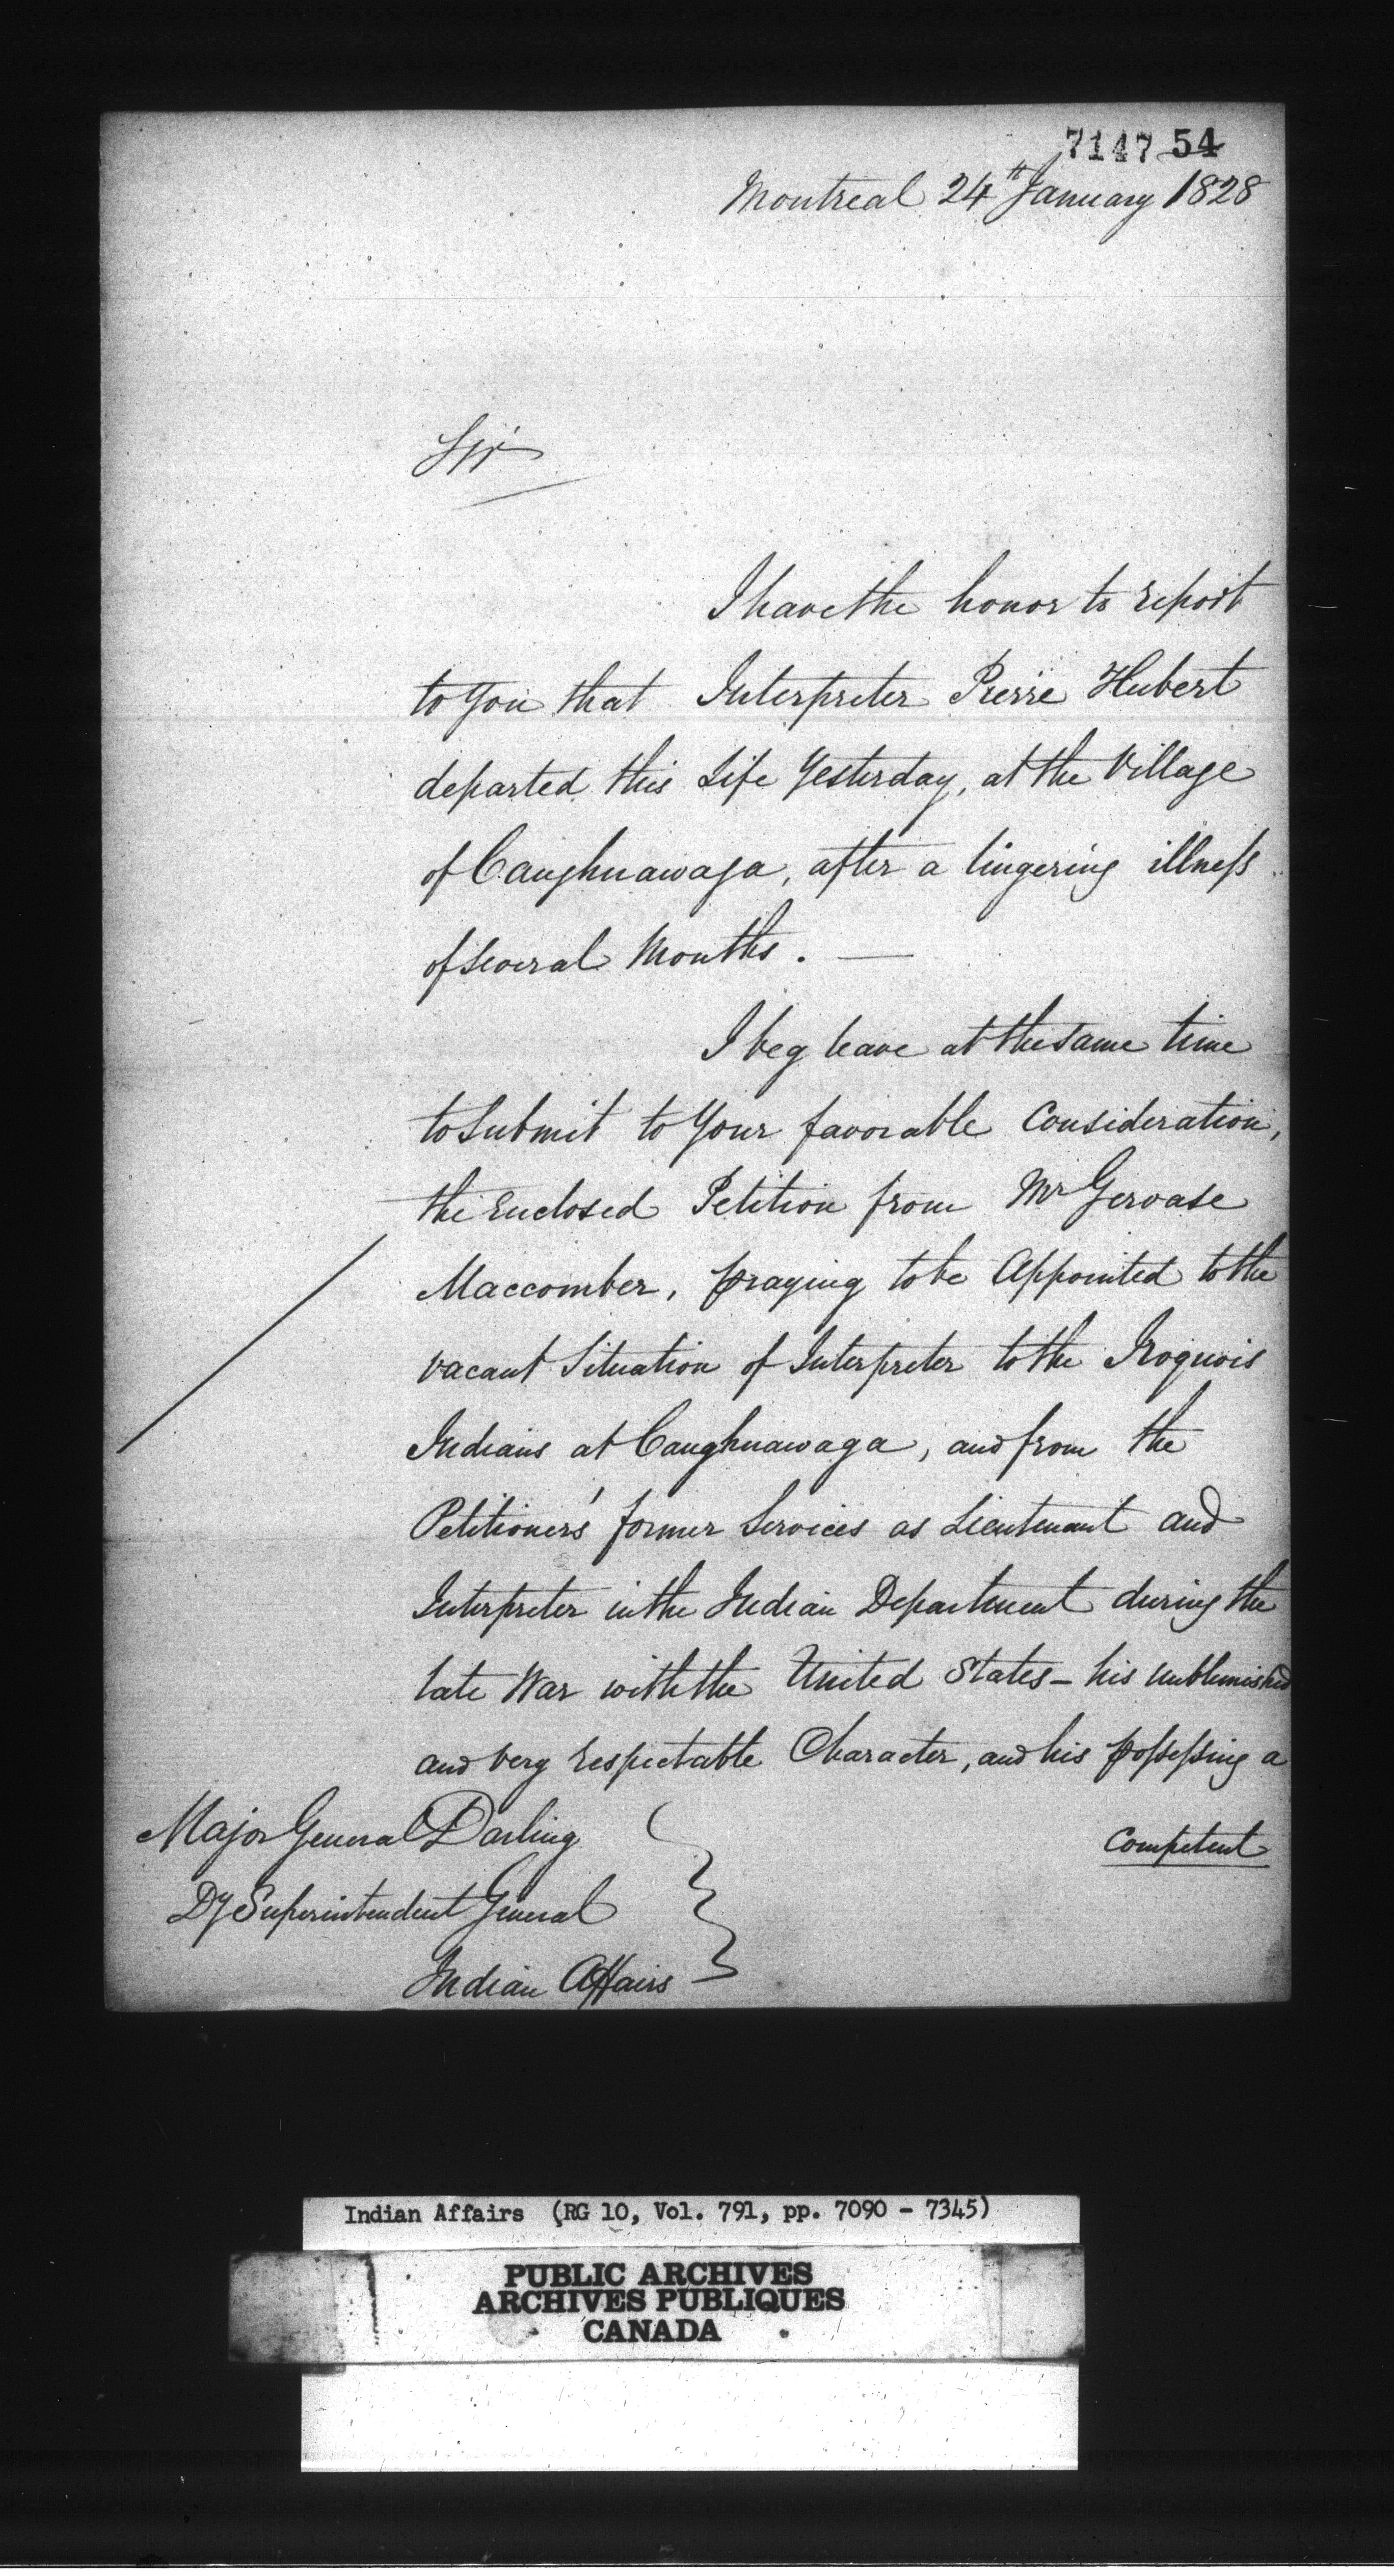 7147 54
Montreal 24th January 1828
Sir
I have the honor to report
to You that Interpreter Pierre Hubert
departed this Life Yesterday, at the Village
of Caughnawaga, after a lingering illness
of Several Months. —
I beg leave at the same time
to Submit to Your favorable Consideration,
the Enclosed Petition from Mr Gervase
Maccomber, praying to be Appointed to the
vacant Situation of Interpreter to the Iroquois
Indians at Caughnawaga, and from the
Petitioners' former Services as Lieutenant and
Interpreter in the Indian Department during the
late War with the United States – his unblemished
and very respectable Character, and his possessing a
Competent
Major General Darling
Dy Superintendent General
Indian Affairs
Indian Affairs (RG 10, Vol. 791, pp. 7090 - 7345)
PUBLIC ARCHIVES
ARCHIVES PUBLIQUES
CANADA